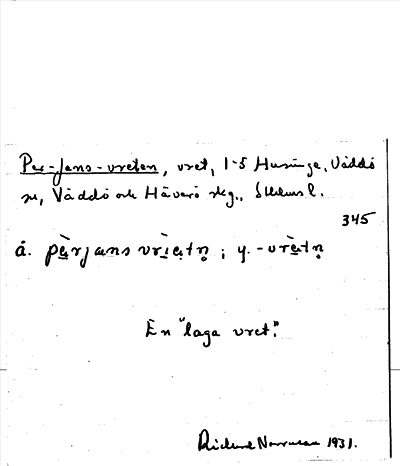 Per-Jans-vreten, vret, 1-5 Husinge, Väddö
sn, Väddö och Häverö skg., Sthlms l.
345
å. pæ̀rjans vri̯ætn̥ ; y. -vrètn̥
En "laga vret."
Rickard Norrman 1931.